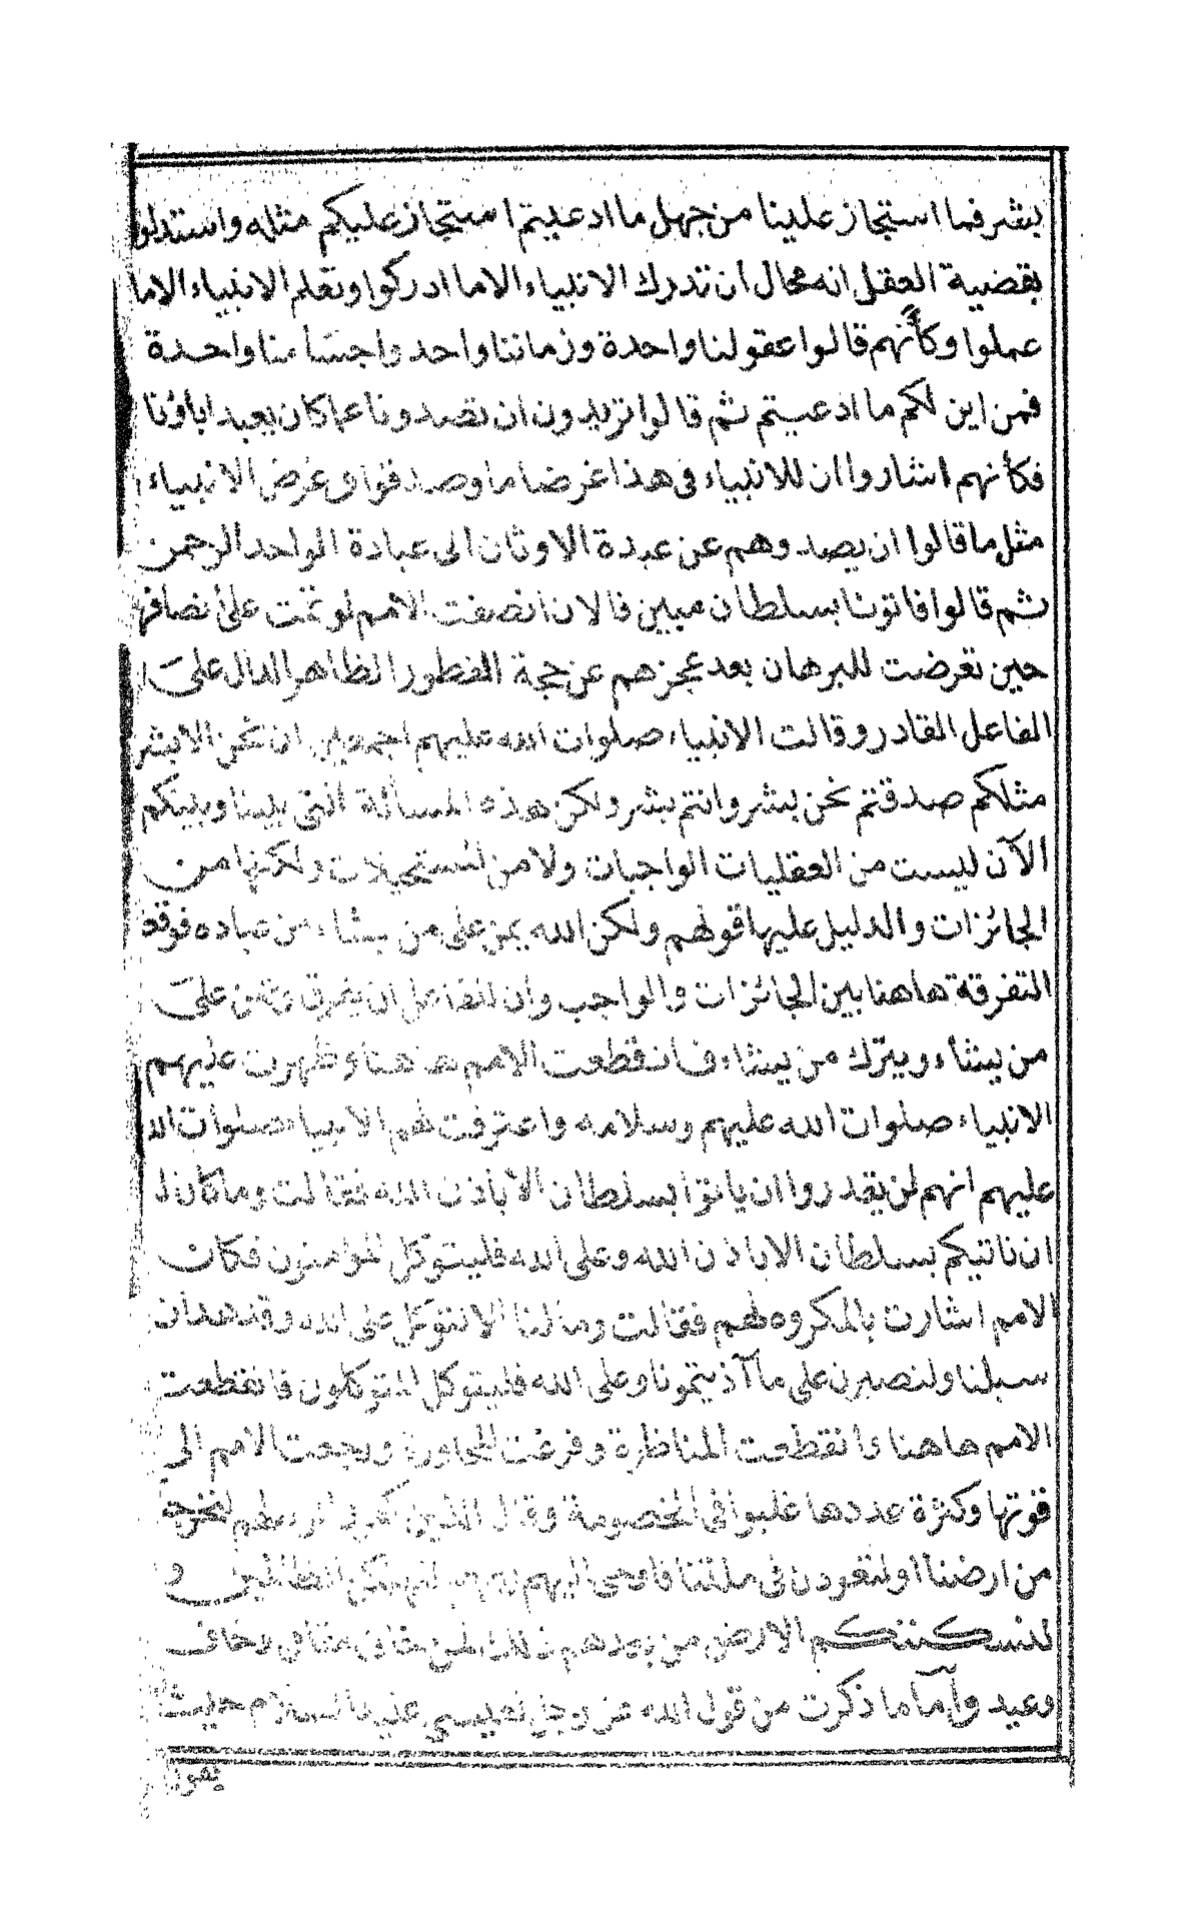 بشر فما استجاز علينا من جهل ما ادعيتم استجاز عليكم مثله واستدلوا
بقضية العقل انه محال ان تدرك الانبياء الاما ادركوا وتعلم الانبياء الاما
عملوا وكأنهم قالوا عقولنا واحدة وزماننا واحد واجسامنا واحدة
فمن اين لكم ما ادعيتم ثم قالوا تريدون ان تصدونا عما كان يعبد اباؤنا
فكأنهم اشاروا ان للانبياء في هذا غرضا ما وصدقوا وغرض الانبياء
مثل ما قالوا ان يصدوهم عن عبدة الاوثان الى عبادة الواحد الرحمن
ثم قالوا فاتونا بسلطان مبين فالان انصفت الامم لو تمت على نصافها
حين تعرضت للبرهان بعد عجزهم عن حجة الفطور الظاهر الدال على
الفاعل القادر وقالت الانبياء صلوات الله عليهم اجمعين ان نحن الا بشر
مثلكم صدقتم نحن بشر وانتم بشر ولكن هذه المسألة التي بيننا وبينكم
الآن ليست من العقليات الواجبات ولا من المستحيلات ولكنها من
الجائزات والدليل عليها قولهم ولكن الله يمن على من يشاء من عباده فوقع
التفرقة هاهنا بين الجائزات والواجب وان للفاعل ان يفرق ويمن على
من يشاء ويترك من يشاء فانقطعت الامم هاهنا وظهرت عليهم
الانبياء صلوات الله عليهم وسلامه واعترفت لهم الانبياء صلوات الله
عليهم انهم لن يقدروا ان ياتوا بسلطان الا باذن الله فقالت وما كان لنا
ان ناتيكم بسلطان الا باذن الله وعلى الله فليتوكل المؤمنون فكات
الامم اشارت بالمكروه لهم فقالت وما لنا الا نتوكل على الله وقد هدان
سبلنا ولنصبرن على ما آذيتمونا وعلى الله فليتوكل المتوكلون فانقطعت
الامم هاهنا وانقطعت المناظرة وفرغت المحاورة ورجعت الامم الى
قوتها وكثرة عددها غلبوا في الخصومة وقال الذين كفروا لرسلهم لنخرجنكم
من ارضنا او لتعودن في ملتنا فاوحى اليهم ربهم لنهلكن الظالمين و
لنسكننكم الارض من بعدهم ذلك لمن خاف مقامي وخاف
وعيد وأما ما ذكرت من قول الله عز وجل لعيسى عليه السلام حيث
يقول